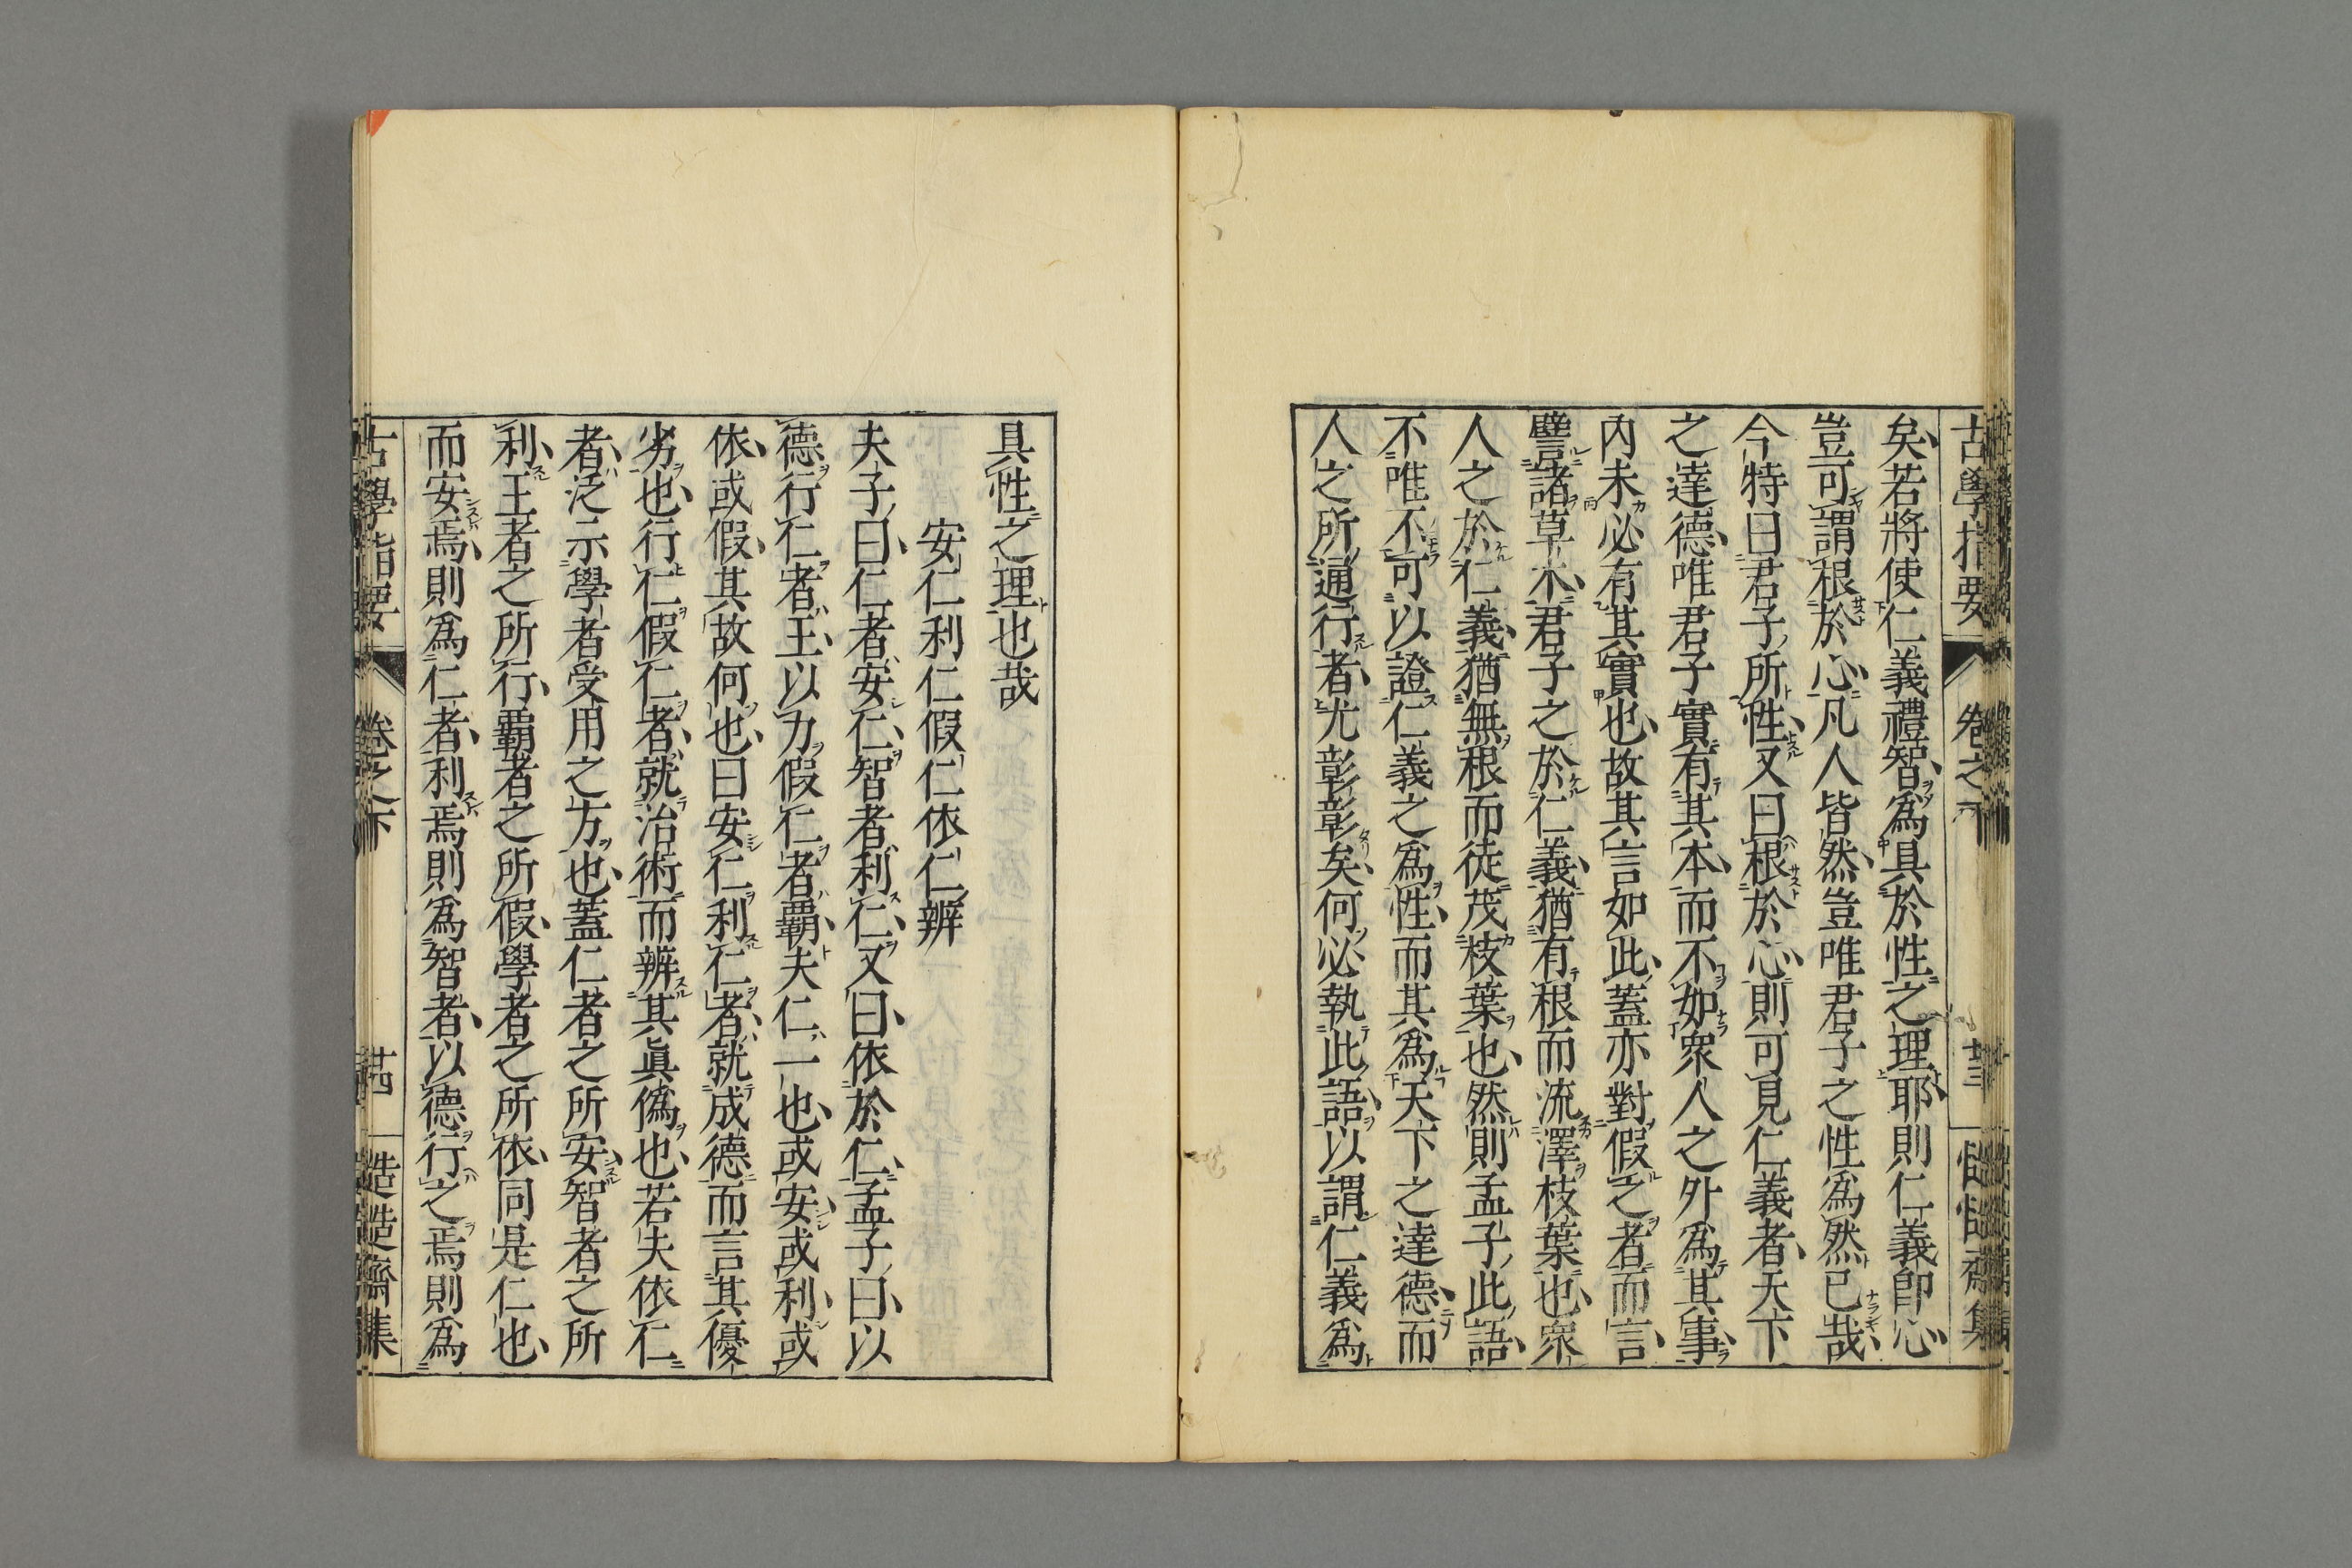 古學指要 卷之下 廿三 慥慥齋集
矣若將使仁義禮智爲具於性之理耶則仁義卽心
豈可謂根於心凡人皆然豈唯君子之性爲然已哉
今特曰君子所性又曰根於心則可見仁義者天下
之達德唯君子實有其本而不如衆人之外爲其事
內未必有其實也故其言如此蓋亦對假之者而言
譬諸草木君子之於仁義猶有根而流澤枝葉也衆
人之於仁義猶無根而徒茂枝葉也然則孟子此語
不唯不可以證仁義之爲性而其爲天下之達德而
人之所通行者尤彰彰矣何必執此語以謂仁義爲
具性之理也哉
安仁利仁假仁依仁辨
夫子曰仁者安仁智者利仁又曰依於仁孟子曰以
德行仁者王以力假仁者霸夫仁一也或安或利或
依或假其故何也曰安仁利仁者就成德而言其優
劣也行仁假仁者就治術而辨其眞僞也若夫依仁
者泛示學者受用之方也蓋仁者之所安智者之所
利王者之所行霸者之所假學者之所依同是仁也
而安焉則爲仁者利焉則爲智者以德行之焉則爲
古學指要 卷之下 廿四 慥慥齋集